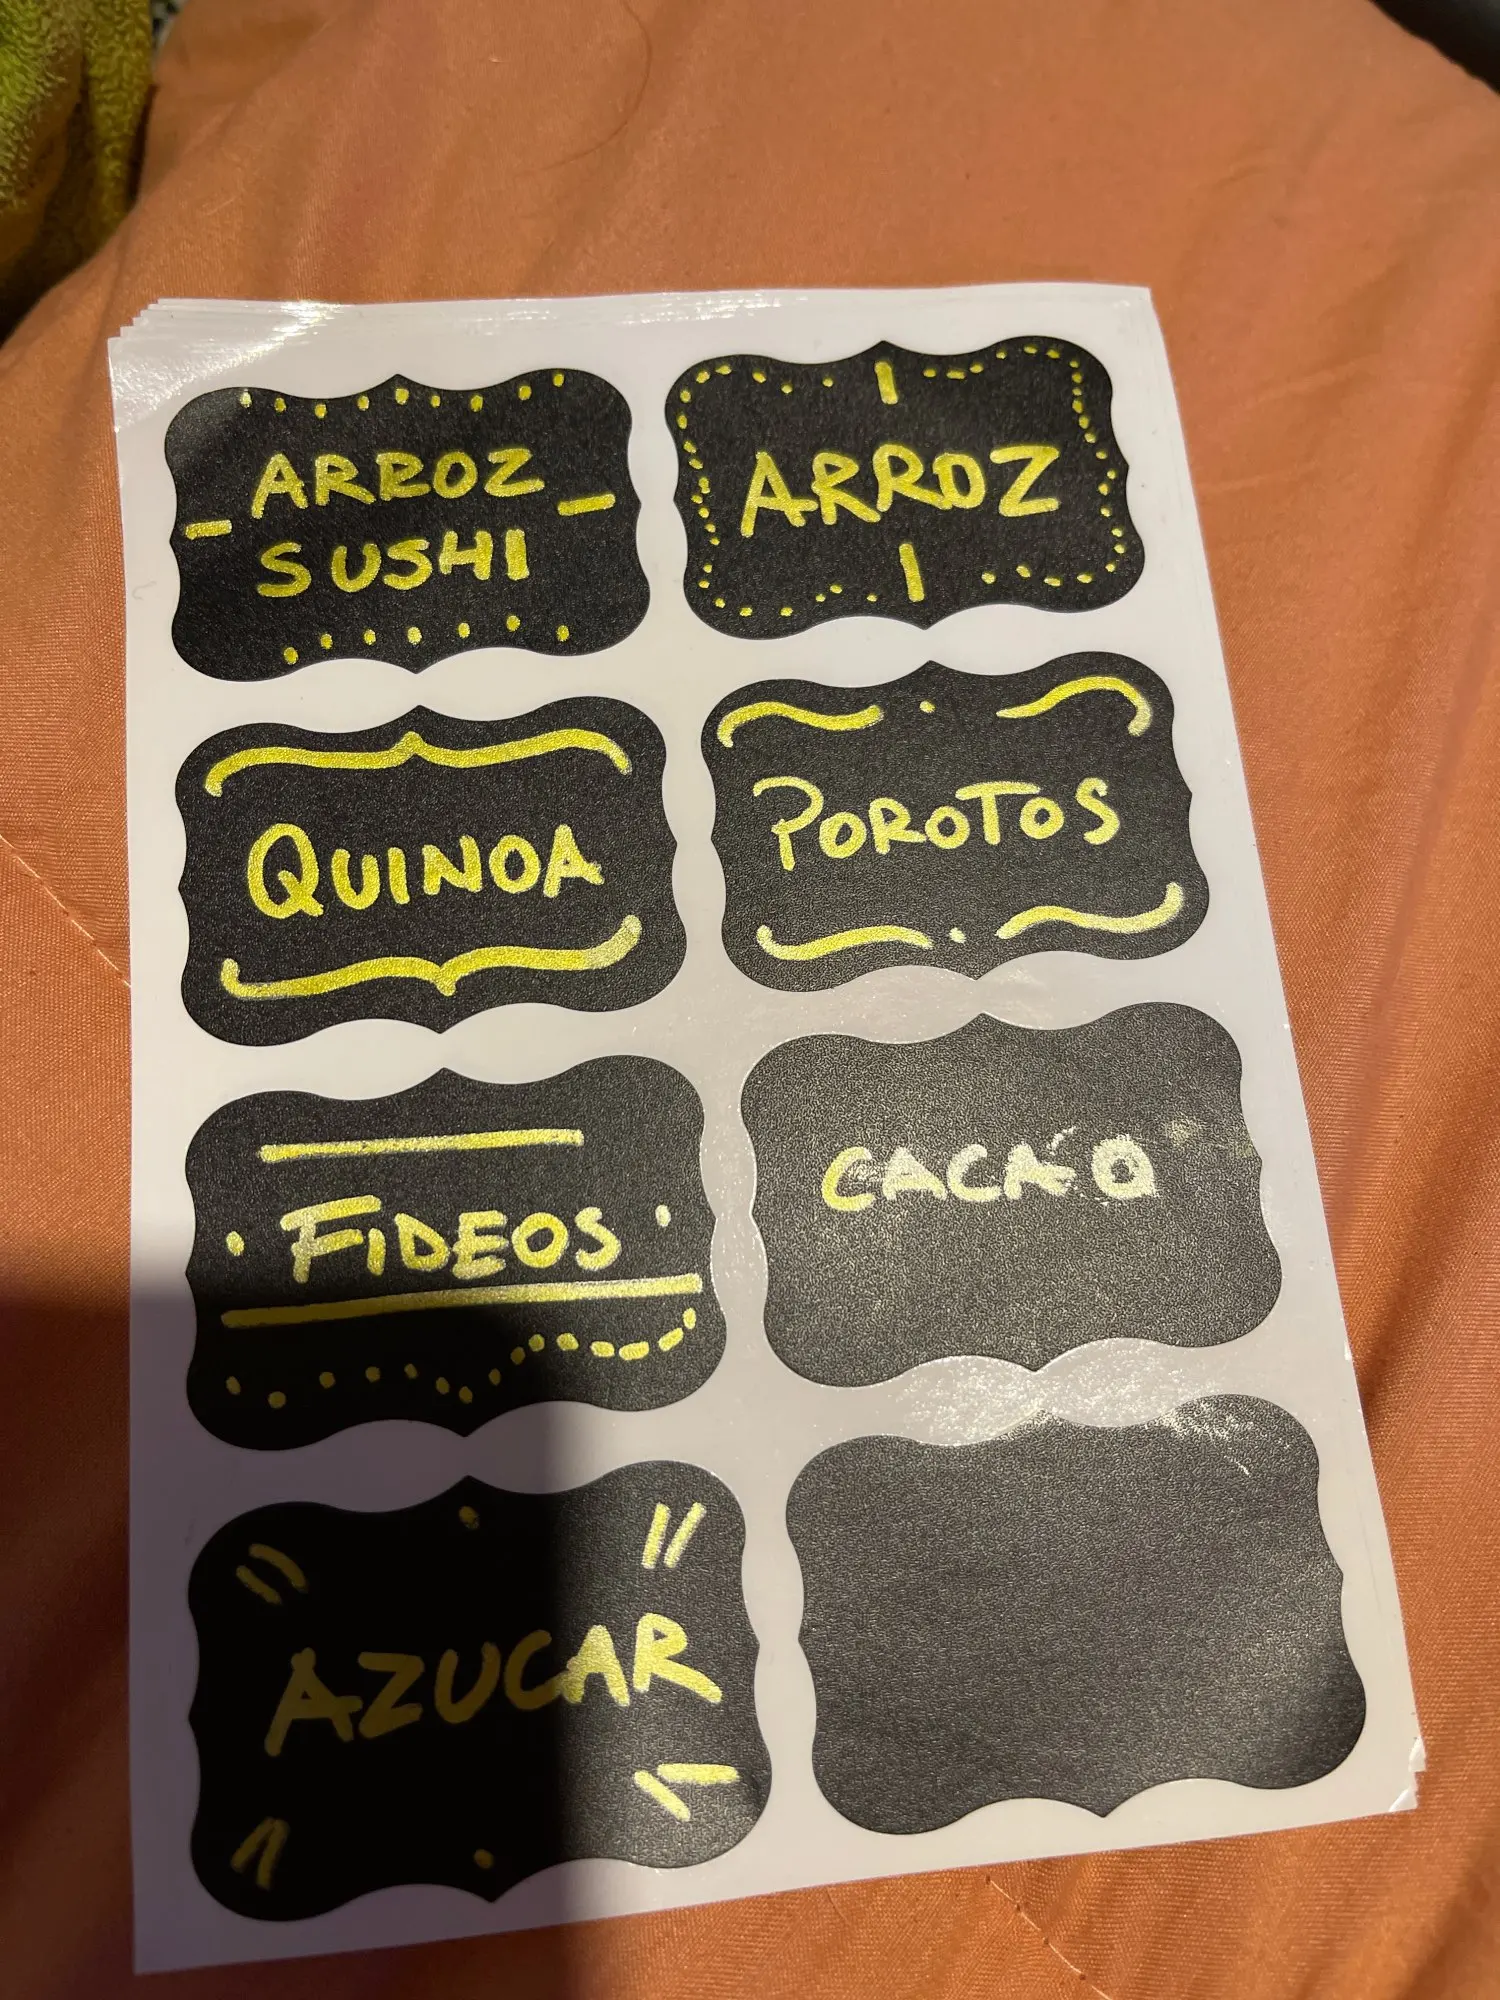 ARROZ
SUSHI
ARROZ
QUINOA
POROTOS
FIDEOS
CACAO
AZUCAR